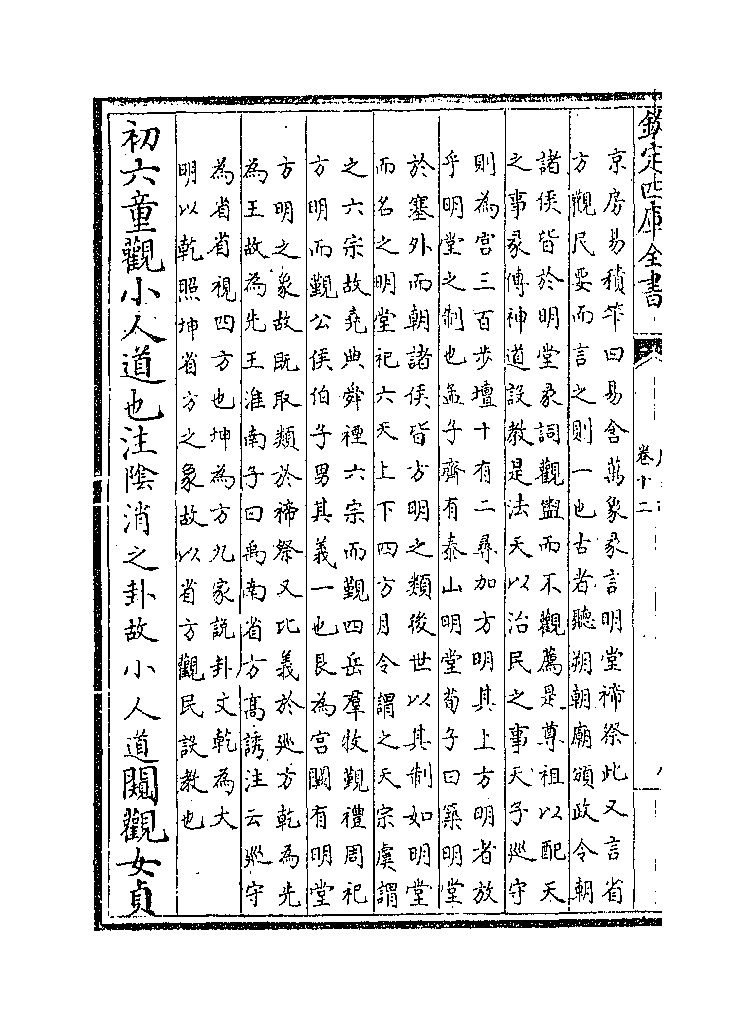 欽定四庫全書
卷十二
京房易積筭曰易含萬象彖言明堂禘祭此又言省
方觀民要而言之則一也古者聽朔朝廟頒政令朝
諸侯皆於明堂彖詞觀盥而不觀薦是尊祖以配天
之事彖傳神道設教是法天以治民之事天子廵守
則為宫三百步壇十有二尋加方明其上方明者放
乎明堂之制也孟子齊有泰山明堂荀子曰築明堂
於塞外而朝諸侯皆方明之類後世以其制如明堂
而名之明堂祀六天上下四方月令謂之天宗虞謂
之六宗故堯典舜禋六宗而覲四岳羣牧覲禮周祀
方明而覲公侯伯子男其義一也艮為宫闕有明堂
方明之象故既取類於禘祭又比義於廵方乾為先
為王故為先王淮南子曰禹南省方高誘注云廵守
為省省視四方也坤為方九家說卦文乾為大
明以乾照坤省方之象故以省方觀民設教也
初六童觀小人道也注陰消之卦故小人道闚觀女貞